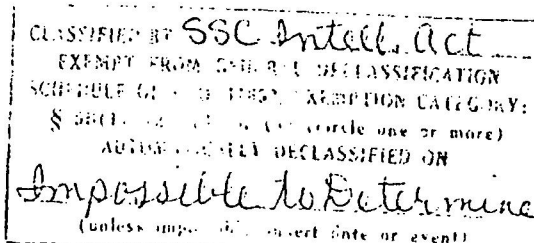 CLASSIFIED BY SSC Intell. Act
EXEMPT FROM DECLASSIFICATION
SCHEDULE EXEMPTION CATEGORY:
§ (circle one or more)
AUTOMATICALLY DECLASSIFIED ON
Impossible to Determine
(unless insert date or event)